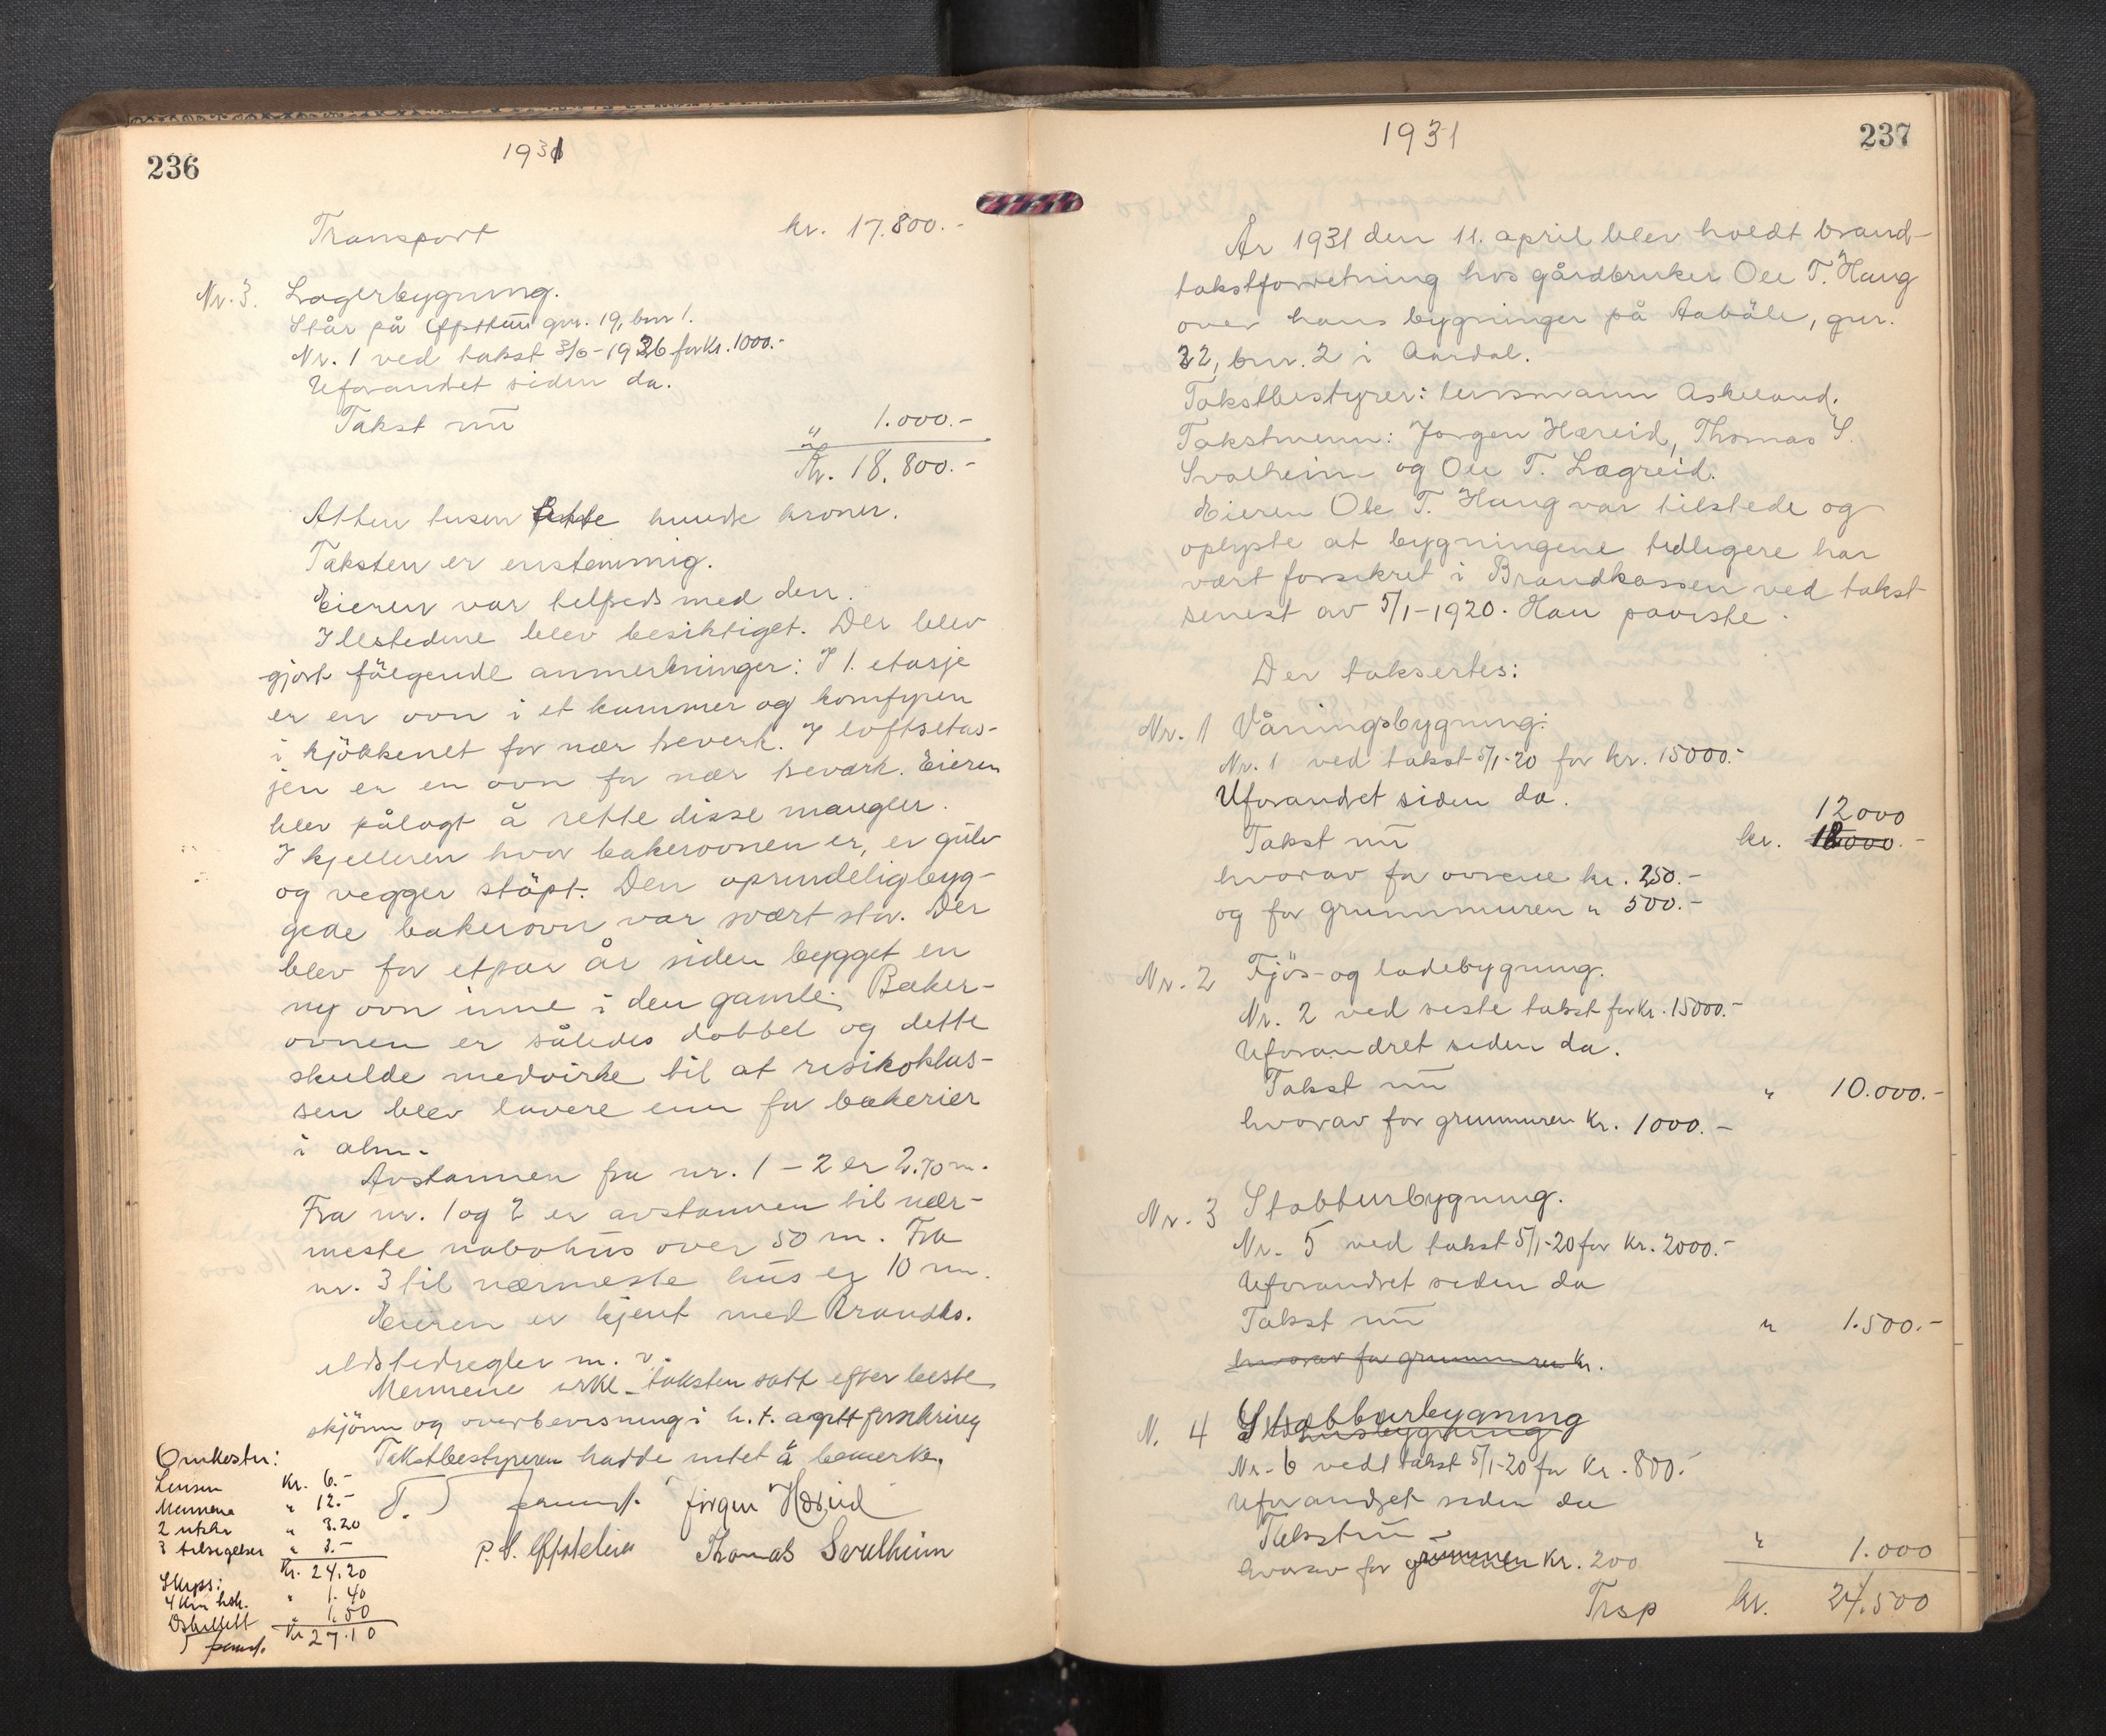 236
1931
Transport kr. 17.800.-
Nr. 3. Lagerbygning.
Står på Offstein gnr. 19, bnr 1.
Nr. 1 ved takst 3/6-1926 for kr. 1000.-
Uforandret siden da.
Takst nu " 1.000.-
Kr. 18.800.-
Atten tusen åtte hundre kroner.
Taksten er enstemmig.
Eieren var tilfreds med den.
Ildstedene blev besiktiget. Der blev
gjort følgende anmerkninger: I 1. etasje
er en ovn i et kammer og komfyren
i kjökkenet for nær treverk. I loftsetas-
jen er en ovn for nær treverk. Eieren
blev pålagt å rette disse mangler.
I kjelleren hvor bakerovnen er, er gulv
og vegger støpt. Den oprindelig byg-
gede bakerovn var svært stor. Der
blev for etpar år siden bygget en
ny ovn inne i den gamle. Baker-
ovnen er således dobbel og dette
skulde medvirke til at risikoklas-
sen blev lavere enn for bakerier
i alm.
Avstannen fra nr. 1 - 2 er 2.70 m.
Fra nr. 1 og 2 er avstannen til nær-
meste nabohus over 50 m. Fra
nr. 3 til nærmeste hus er 10 m.
Eieren er kjent med Brandks.
ildstedregler m. v.
Mennene erkl. taksten satt efter beste
skjönn og overbevisning i h. t. avgitt forsikring
Takstbestyreren hadde intet å bemerke.
Jörgen Hæreid
P. O. Offstein Thomas Svalheim
Omkostn:
Lensm kr. 6.-
Mennene " 12.-
2 utskr " 3.20
3 tilsigelser " 3.-
Kr. 24.20
Skyss:
4 km hok. " 1.40
" 1.50
Kr 27.10
1931
237
År 1931 den 11. april blev holdt brand-
takstforretning hos gårdbruker Ole T. Haug
over hans bygninger på Aabøle, gnr.
22, bnr. 2 i Aardal.
Takstbestyrer: lensmann Askeland.
Takstmenn: Jørgen Hæreid, Thomas S.
Svalheim og Ole T. Lægreid.
Eieren Ole T. Haug var tilstede og
oplyste at bygningene tidligere har
vært forsikret i Brandkassen ved takst
senest av 5/1-1920. Han påviste.
Der taksertes:
Nr. 1 Våningsbygning.
Nr. 1 ved takst 5/1-20 for kr. 15000.-
Uforandret siden da.
12000
Takst nu kr. 18000.-
hvorav for ovnene kr. 250.-
og for grunnmuren " 500.-
Nr. 2 Fjös- og ladebygning.
Nr. 2 ved siste takst for kr. 15000.-
Uforandret siden da.
Takst nu " 10.000.-
hvorav for grunmuren kr. 1000.-
Nr. 3 Stabbursbygning.
Nr. 5 ved takst 5/1-20 for kr. 2000.-
Uforandret siden da
Takst nu " 1.500.-
hvorav for grunmuren kr.
N. 4 Stabbursbygning
Nr. 6 vedt takst 5/1-20 for kr. 800.-
Uforandret siden da
Takst nu - " 1.000
hvorav for grunmuren kr. 200
Trsp kr. 24.500